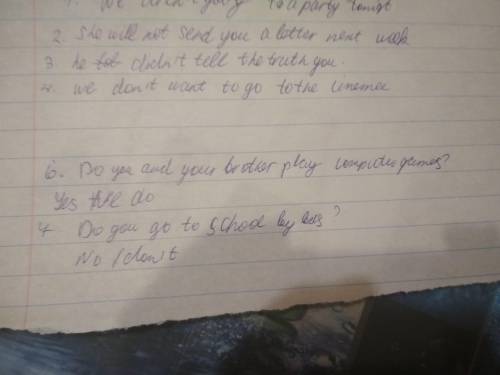 1. We aren't going to a party tonight
2. She will not send you a letter next week
3. he didn't tell the truth you.
4. we don't want to go to the cinemee
6. Do you and your brother play computer games?
Yes we do
7 Do you go to school by bus?
No I don't